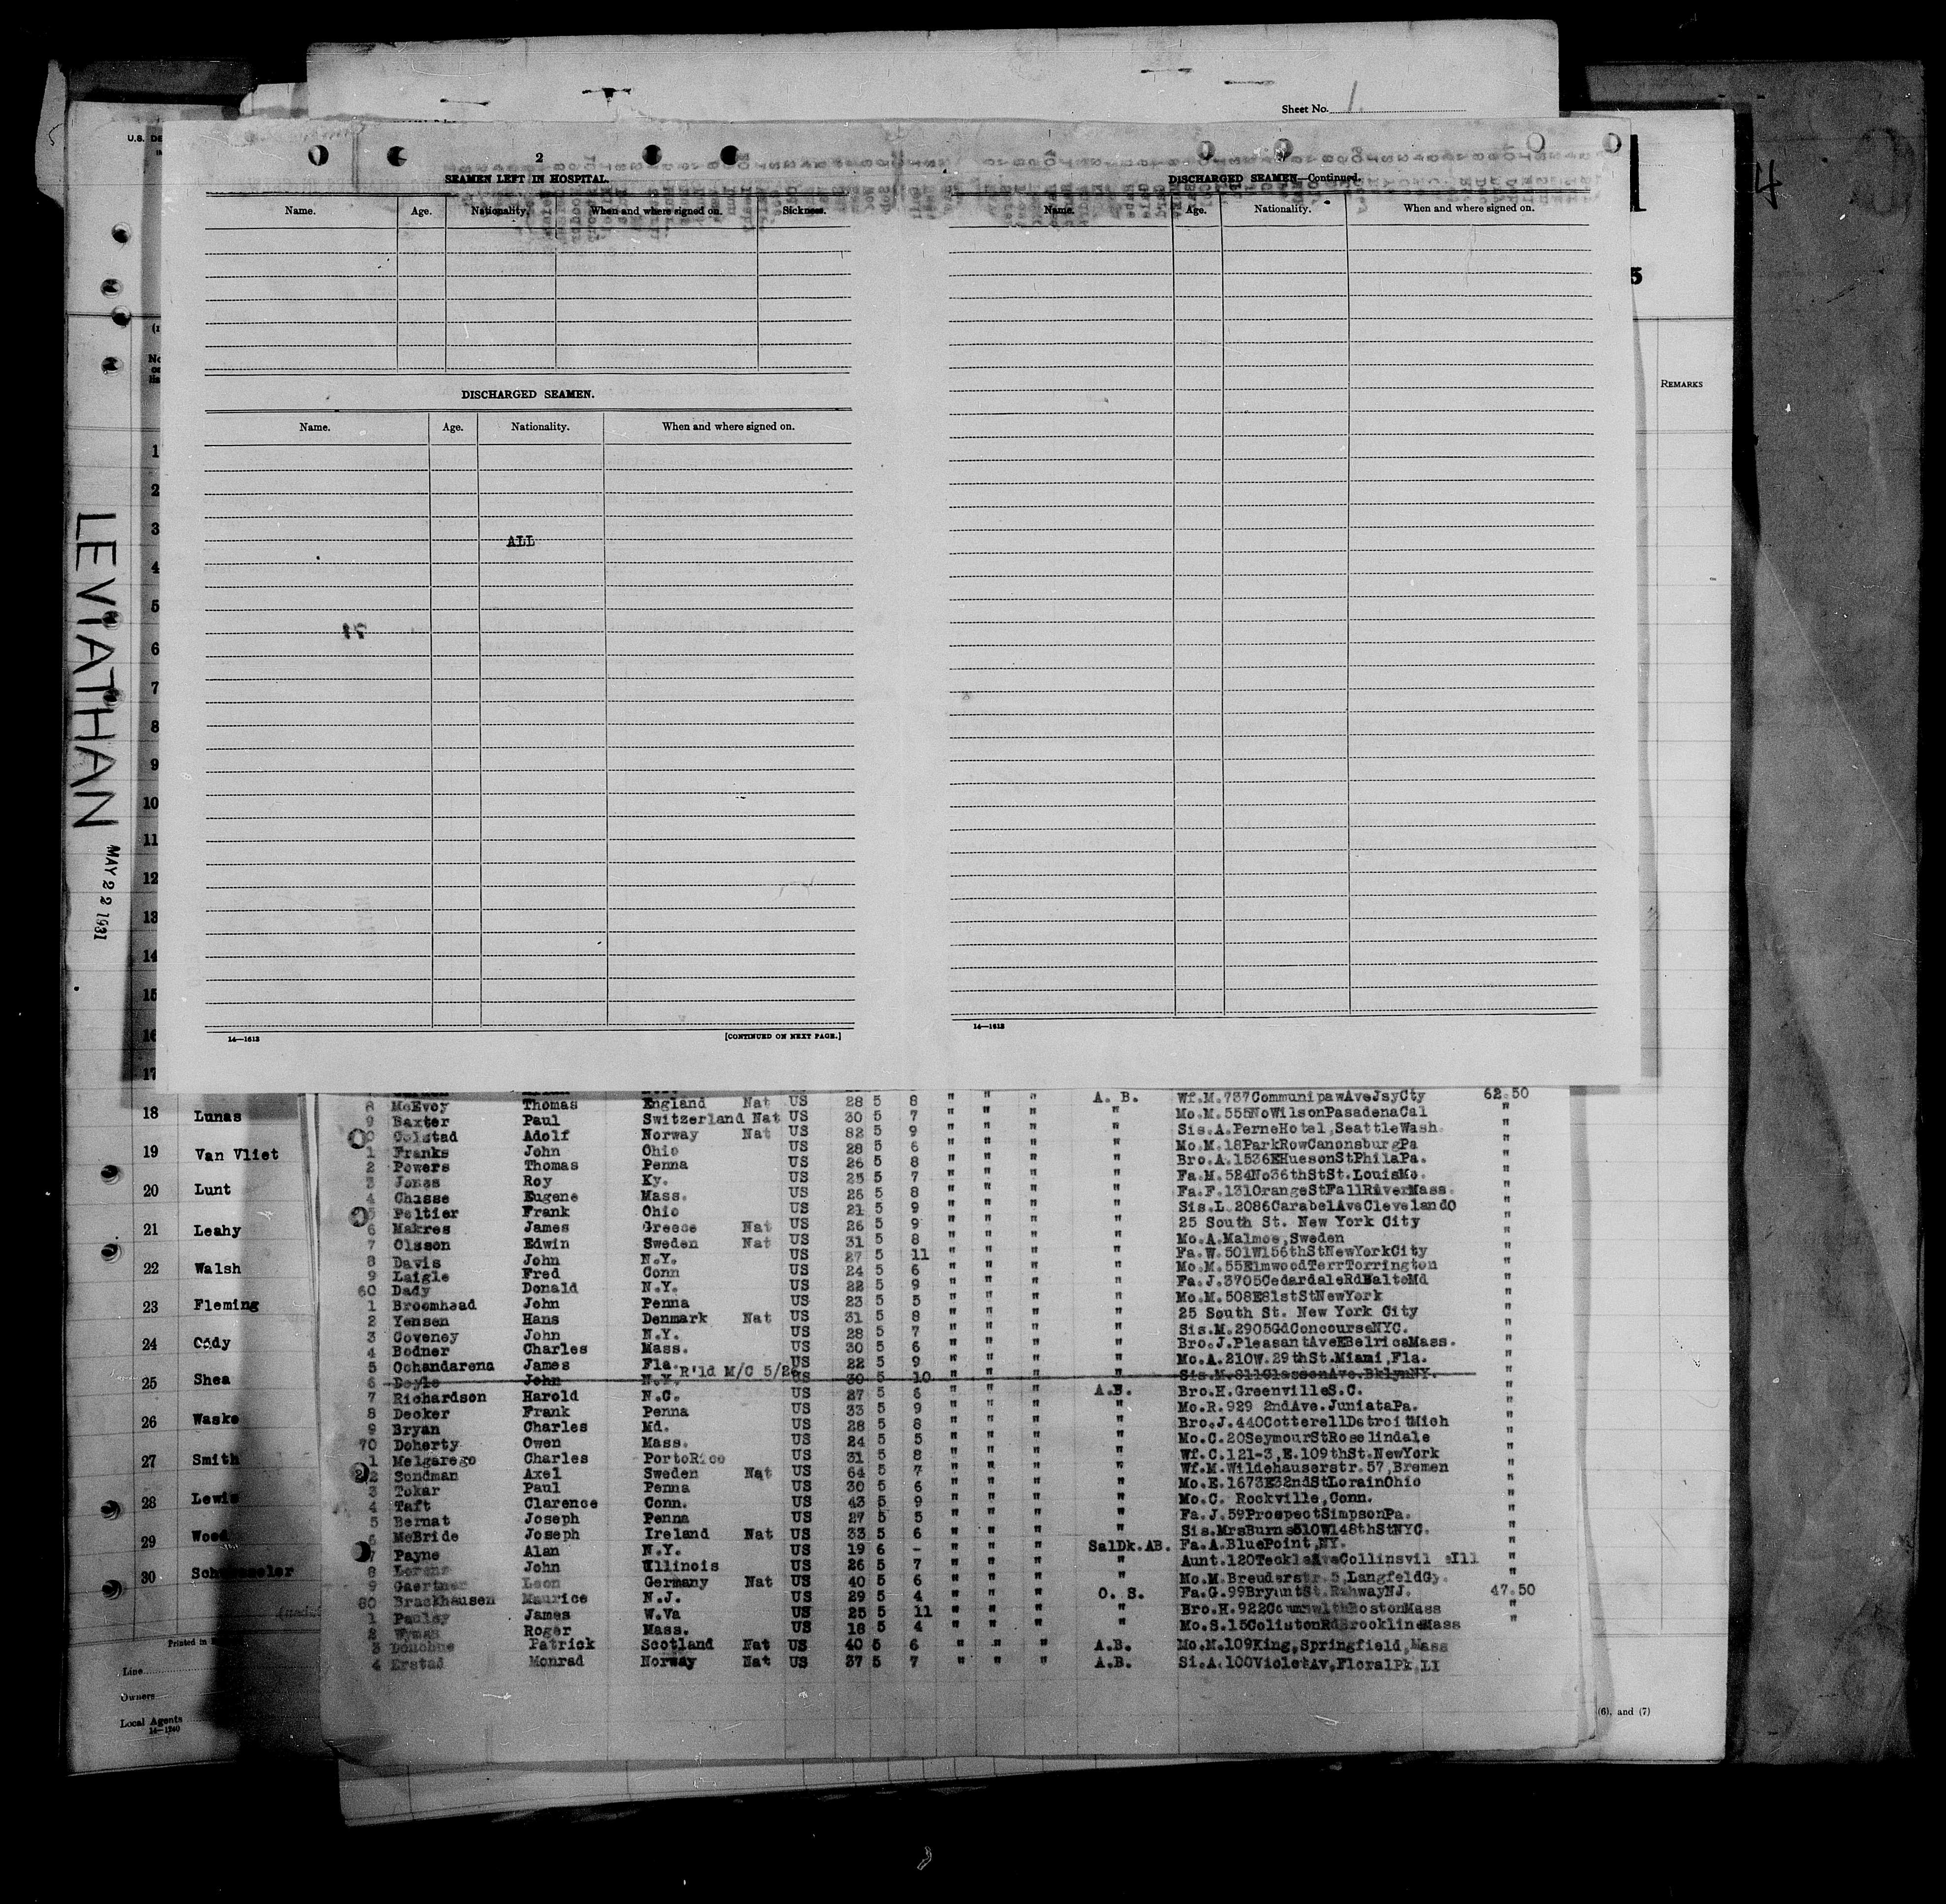 Sheet No. 1
U.S. DE
2
SEAMEN LEFT IN HOSPITAL.
Name. Age. Nationality. When and where signed on. Sickness.
DISCHARGED SEAMEN.
Name. Age. Nationality. When and where signed on.
ALL
14—1613 [CONTINUED ON NEXT PAGE.]
DISCHARGED SEAMEN—Continued.
Name. Age. Nationality. When and where signed on.
14—1613
4
5
REMARKS
LEVIATHAN
MAY 22 1931
1
2
3
4
5
6
7
8
9
10
11
12
13
14
15
16
17
18 Lunas
19 Van Vliet
20 Lunt
21 Leahy
22 Walsh
23 Fleming
24 Cody
25 Shea
26 Waske
27 Smith
28 Lewis
29 Wood
30
Printed in
Line
Owners
Local Agents
14—1240
8 McEvoy Thomas England Nat US 28 5 8 " " " A. B. Wf.M.737CommunipawAveJsyCty 62.50
9 Baxter Paul Switzerland Nat US 30 5 7 " " " " Mo.M.555NoWilsonPasadenaCal "
Colstad Adolf Norway Nat US 82 5 9 " " " " Sis.A.PerneHotel,SeattleWash. "
1 Franks John Ohio US 28 5 6 " " " " Mo.M.18ParkRowCanonsburgPa "
2 Powers Thomas Penna US 26 5 8 " " " " Bro.A.1536EHuesonStPhilaPa. "
3 Jones Roy Ky. US 25 5 7 " " " " Fa.M.524No36thStSt.LouisMo. "
4 Chasse Eugene Mass. US 26 5 8 " " " " Fa.F.131OrangeStFallRiverMass. "
5 Peltier Frank Ohio US 21 5 9 " " " " Sis.L.2086CarabelAveClevelandO "
6 Makres James Greece Nat US 26 5 9 " " " " 25 South St. New York City "
7 Olsson Edwin Sweden Nat US 31 5 8 " " " " Mo.A.Malmoe,Sweden "
8 Davis John N.Y. US 27 5 11 " " " " Fa.W.501W156thStNewYorkCity "
9 Laigle Fred Conn US 24 5 6 " " " " Mo.M.55ElmwoodTerrTorrington "
60 Dady Donald N.Y. US 22 5 9 " " " " Fa.J.3705CedardaleRdBaltoMd "
1 Broomhead John Penna US 23 5 5 " " " " Mo.M.508E81stStNewYork "
2 Yensen Hans Denmark Nat US 31 5 8 " " " " 25 South St. New York City "
3 Coveney John N.Y. US 28 5 7 " " " " Sis.M.2905GdConcourseNYC. "
4 Bodner Charles Mass. US 30 5 6 " " " " Bro.J.PleasantAveEBelricaMass. "
5 Ochandarena James Fla. US 22 5 9 " " " " Mo.A.210W.29thSt.Miami,Fla. "
R'ld M/C 5/20
6 Doyle John N.Y. US 30 5 10 " " " " Sis.M.811ClassonAve.BklynNY. "
7 Richardson Harold N.C. US 27 5 6 " " " A.B. Bro.H.GreenvilleS.C. "
8 Decker Frank Penna US 33 5 9 " " " " Mo.R.929 2ndAve.JuniataPa. "
9 Bryan Charles Md. US 28 5 8 " " " " Bro.J.440CotterellDetroitMich "
70 Doherty Owen Mass. US 24 5 5 " " " " Mo.C.20SeymourStRoselindale "
1 Melgarego Charles PortoRico US 31 5 8 " " " " Wf.C.121-3,E.109thSt.NewYork "
2 Sundman Axel Sweden Nat US 64 5 7 " " " " Wf.M.Wildehauserstr.57,Bremen "
3 Tokar Paul Penna US 30 5 6 " " " " Mo.E.1673E32ndStLorainOhio "
4 Taft Clarence Conn. US 43 5 9 " " " " Mo.C. Rockville,Conn. "
5 Bernat Joseph Penna US 27 5 5 " " " " Fa.J.59ProspectSimpsonPa. "
6 McBride Joseph Ireland Nat US 33 5 6 " " " " Sis.MrsBurns510W148thStNYC. "
7 Payne Alan N.Y. US 19 6 - " " " SalDk.AB. Fa.A.BluePoint,NY. "
8 Lorenz John Illinois US 26 5 7 " " " " Aunt.120 Collinsvil eIll "
9 Gaertner Leon Germany Nat US 40 5 6 " " " " Mo.M.Breuderstr.5,LangfeldGy. "
80 Brackhausen Maurice N.J. US 29 5 4 " " " O. S. Fa.G.99BryantSt.RahwayNJ. 47.50
1 Pauley James W.Va US 25 5 11 " " " " Bro.H.922ComnwlthBostonMass "
2 Wyman Roger Mass. US 18 5 4 " " " " Mo.S.15ColistonRdBrooklineMass "
3 Donohue Patrick Scotland Nat US 40 5 6 " " " A.B. Mo.M.109King,Springfield,Mass
4 Erstad Monrad Norway Nat US 37 5 7 " " " A.B. Si.A.100VioletAv,FloralPk,LI
(6), and (7)